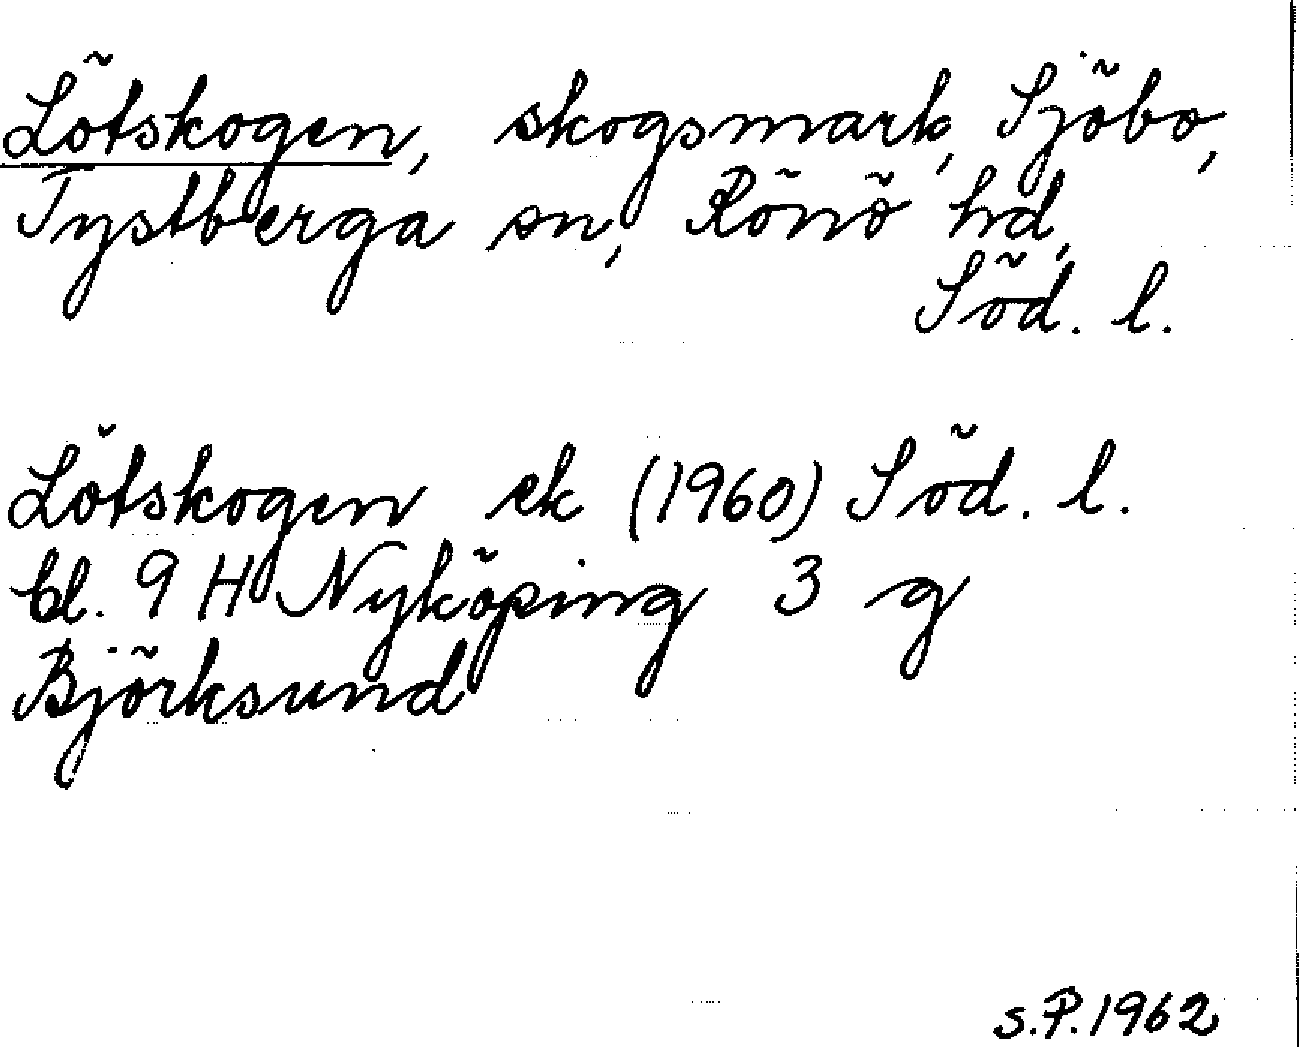 Lötskogen, skogsmark, Sjöbo,
Tystberga sn, Rönö hd,
Söd. l.
Lötskogen ek (1960) Söd. l.
bl. 9 H Nyköping 3 g
Björksund
S.P. 1962